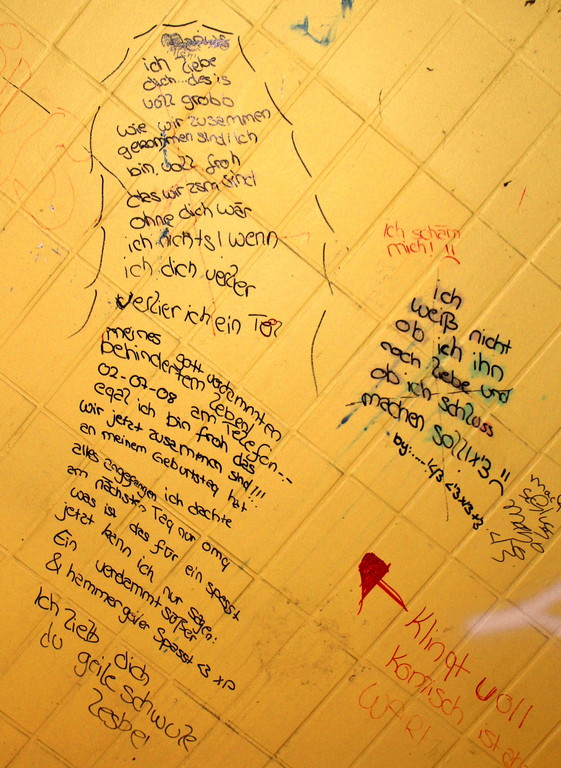 ich liebe
dich...des is
voll grobo
wie wir zusammen
gekommen sind! ich
bin voll froh
das wir zam sind
ohne dich wär
ich nichts! wenn
ich dich verlier
verlier ich ein Teil
meines gott verdammten
behinderten Leben
02-07-08 am Telefon...
egal ich bin froh das
wir jetzt zusammen sind!!!
an meinem Geburtstag hat
alles angefangen ich dachte
am nächsten Tag nur omg
was ist das für ein spasst
jetzt kann ich nur sagen:
Ein verdammt süßer
& hammer geiler Spasst <3 xP
Ich lieb dich
du geile schwule
Lesbe!
Ich schäm
mich! !!
Ich
weiß nicht
ob ich ihn
noch liebe und
ob ich schluss
machen soll!x'3
by:
Klingt voll
komisch ist aba
WAR!